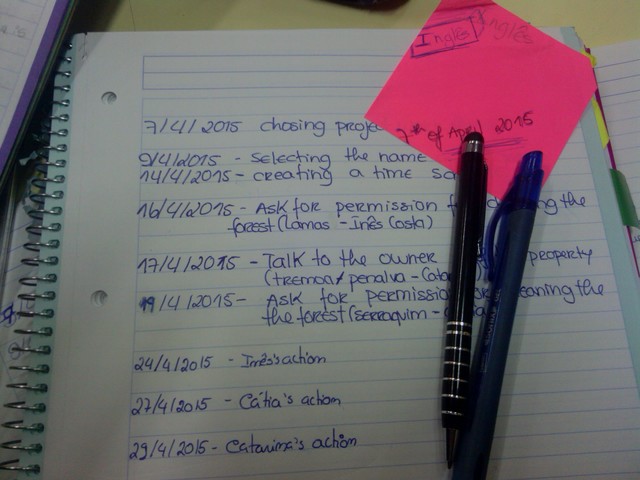 Inglês
Inglês
7th of April 2015
7/4/2015 chosing
9/4/2015 - selecting the name
14/4/2015 - creating a time
16/4/2015 - Ask for permission the
forest (Lamas - Inês Costa)
17/4/2015 - Talk to the owner property
(tremoa/ penalva -
19/4/2015 - Ask for permission the
the forest (serraquim -
24/4/2015 - Inês's action
27/4/2015 - Cátia's action
29/4/2015 - Catarina's action